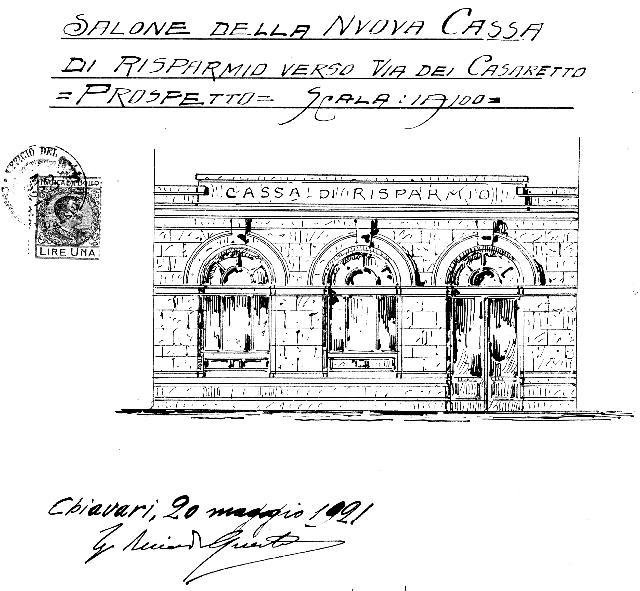 SALONE DELLA NVOVA CASSA
DI RISPARMIO VERSO VIA DEI CASARETTO
=PROSPETTO= SCALA: 1A100=
UFFICIO DEL
LIRE UNA
CASSA DI RISPARMIO
Chiavari, 20 maggio 1921